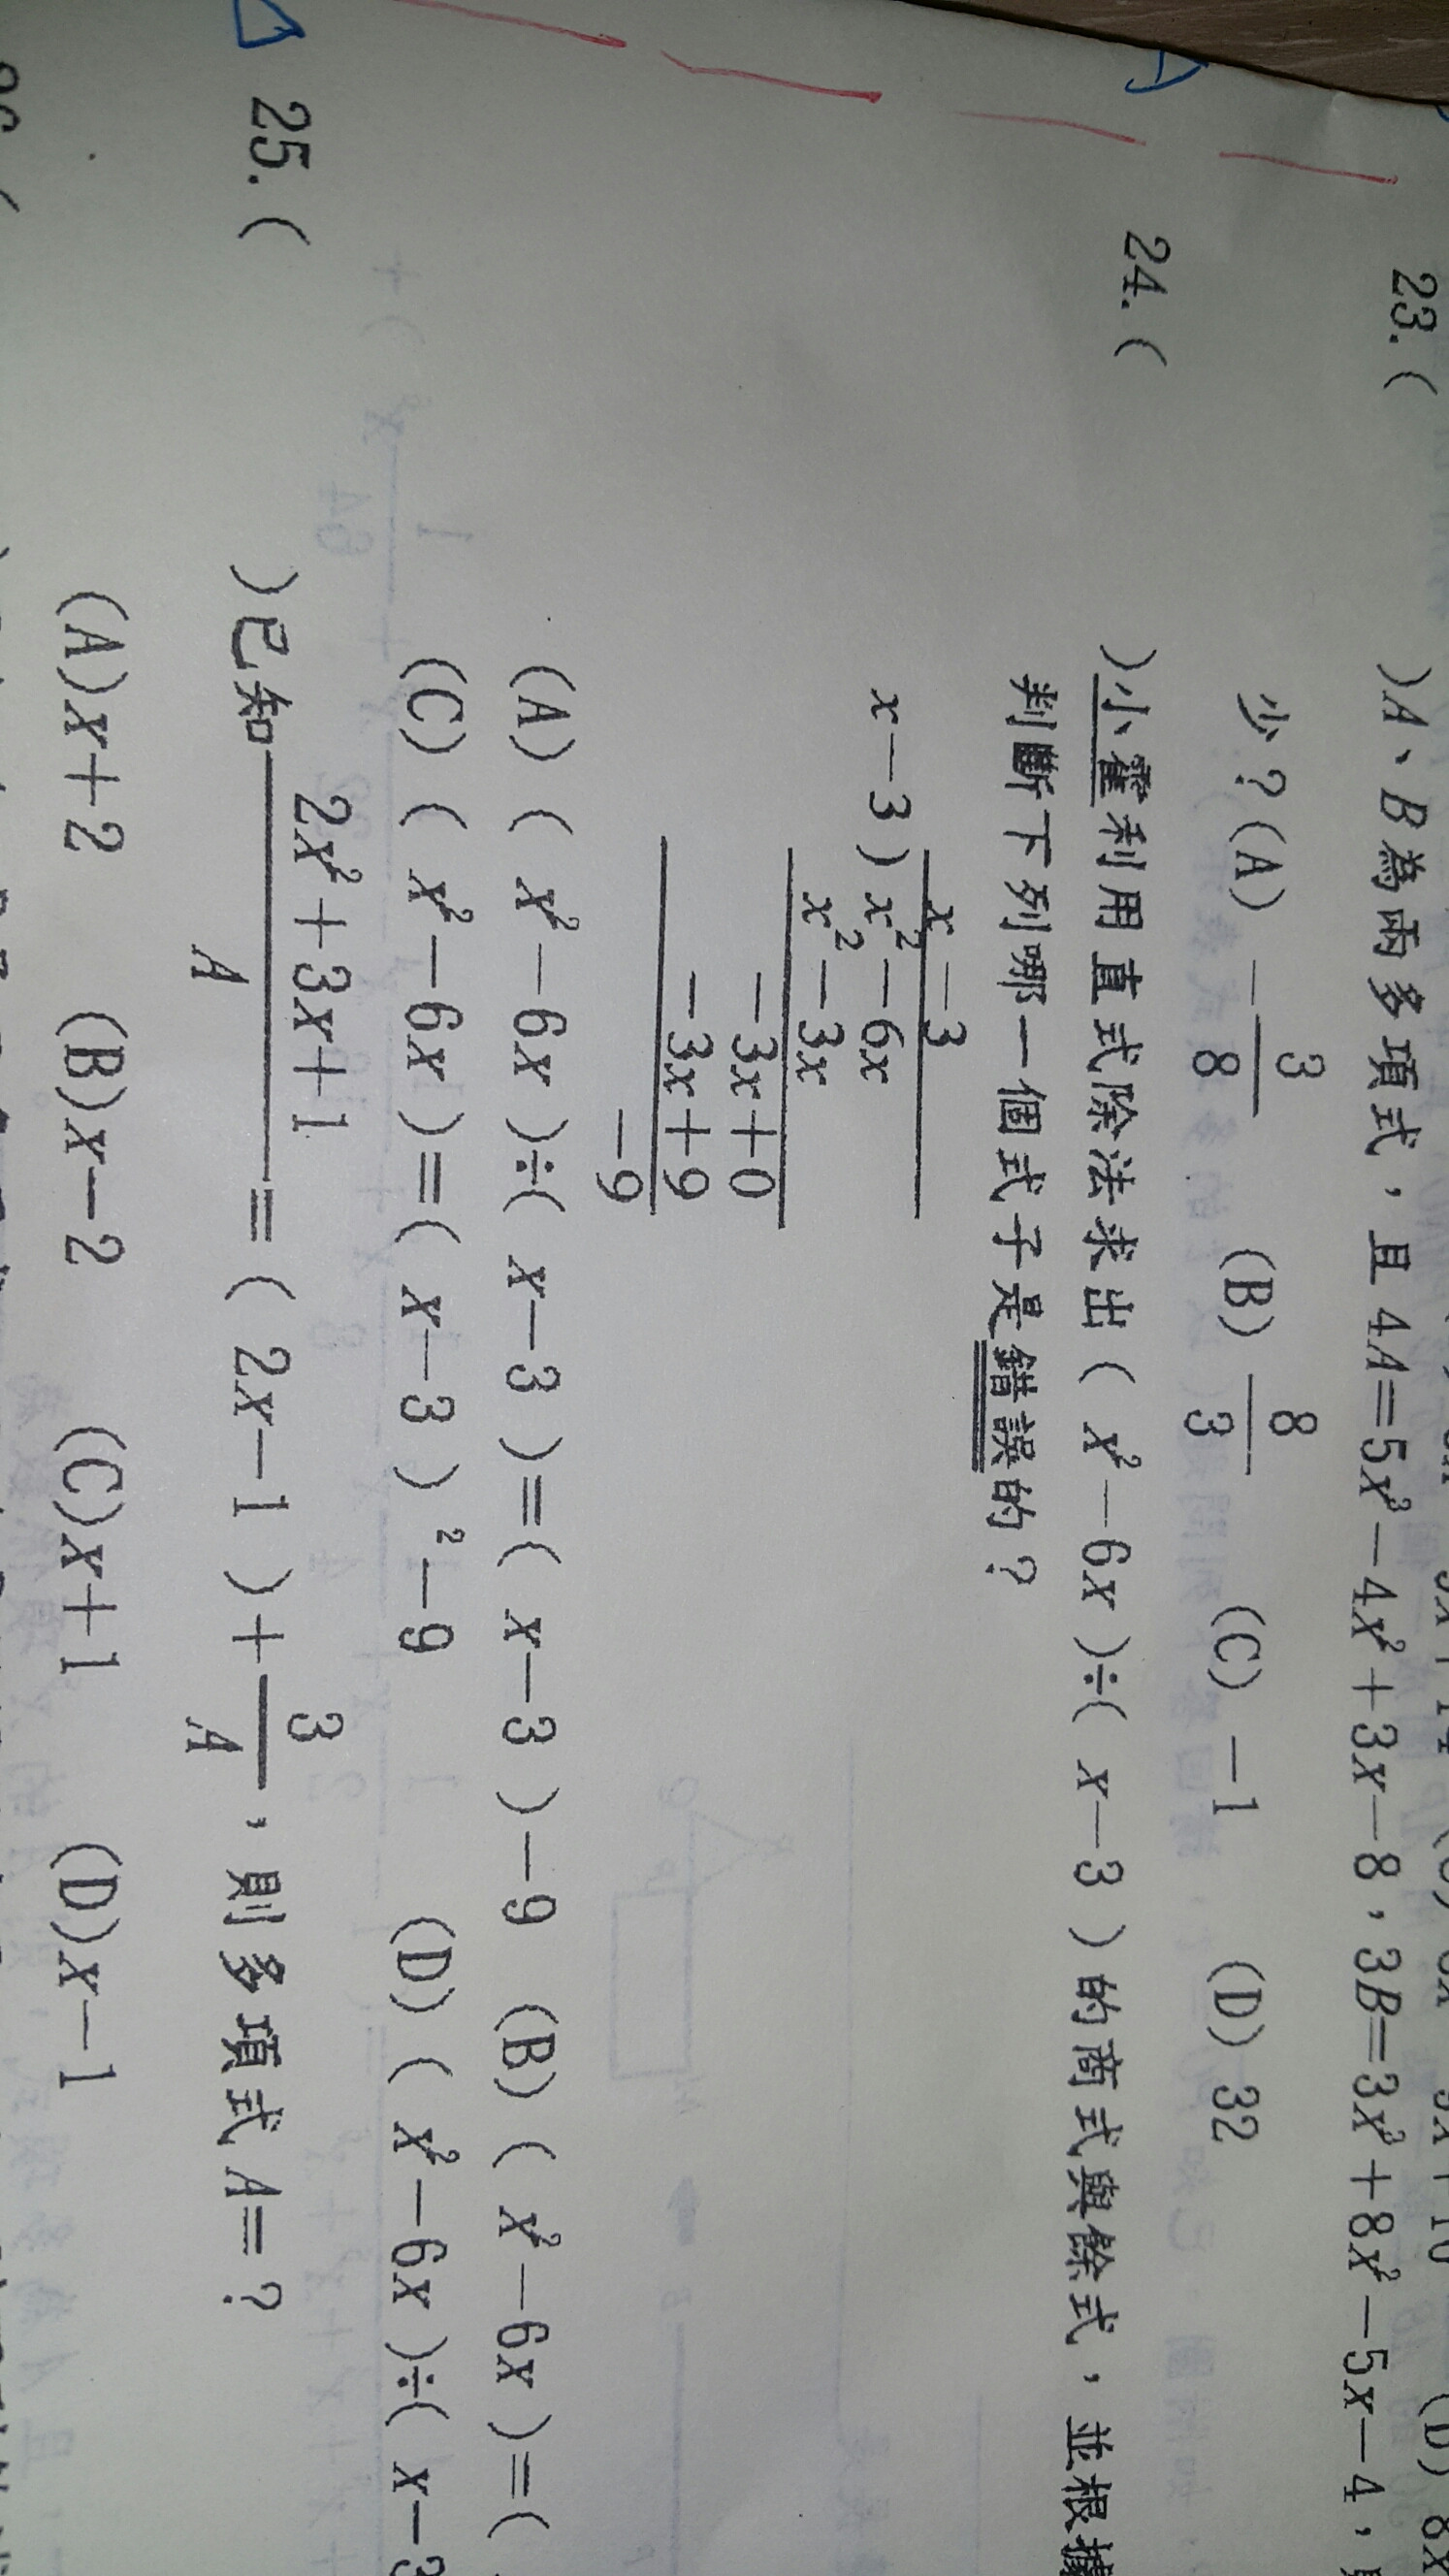 23. ( )A、B為兩多項式，且4A=5x³-4x²+3x-8，3B=3x³+8x²-5x-4，
少？(A) -3/8 (B) 8/3 (C) -1 (D) 32
24. ( )小霍利用直式除法求出( x²-6x )÷( x-3 )的商式與餘式，並根據
判斷下列哪一個式子是錯誤的？
x-3
x-3 ) x²-6x
x²-3x
-3x+0
-3x+9
-9
(A) ( x²-6x )÷( x-3 )=( x-3 )-9 (B) ( x²-6x )=(
(C) ( x²-6x )=( x-3 )²-9 (D) ( x²-6x )÷( x-3
25. ( )已知 (2x²+3x+1)/A =( 2x-1 )+ 3/A，則多項式A=？
(A)x+2 (B)x-2 (C)x+1 (D)x-1